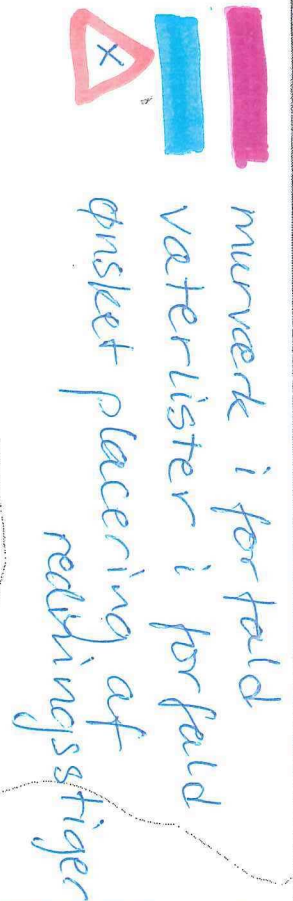 murværk i forfald
vaterlister i forfald
ønsket placering af
redningsstiger